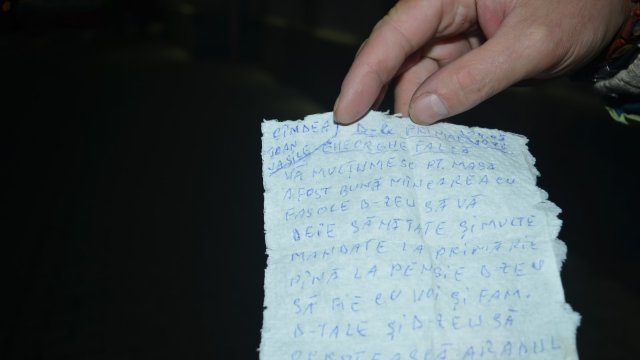 CÎNDEA D-le PRIMAR
IOAN
VASILE GHEORGHE FALCĂ
VĂ MULȚUMESC PT. MASA
A FOST BUNĂ MÎNCAREA CU
FASOLE D-ZEU SĂ VĂ
DEIE SĂNĂTATE ȘI MULTE
MANDATE LA PRIMĂRIE
PÎNĂ LA PENSIE D-ZEU
SĂ FIE CU VOI ȘI FAM.
D-TALE ȘI D-ZEU SĂ
ARADUL